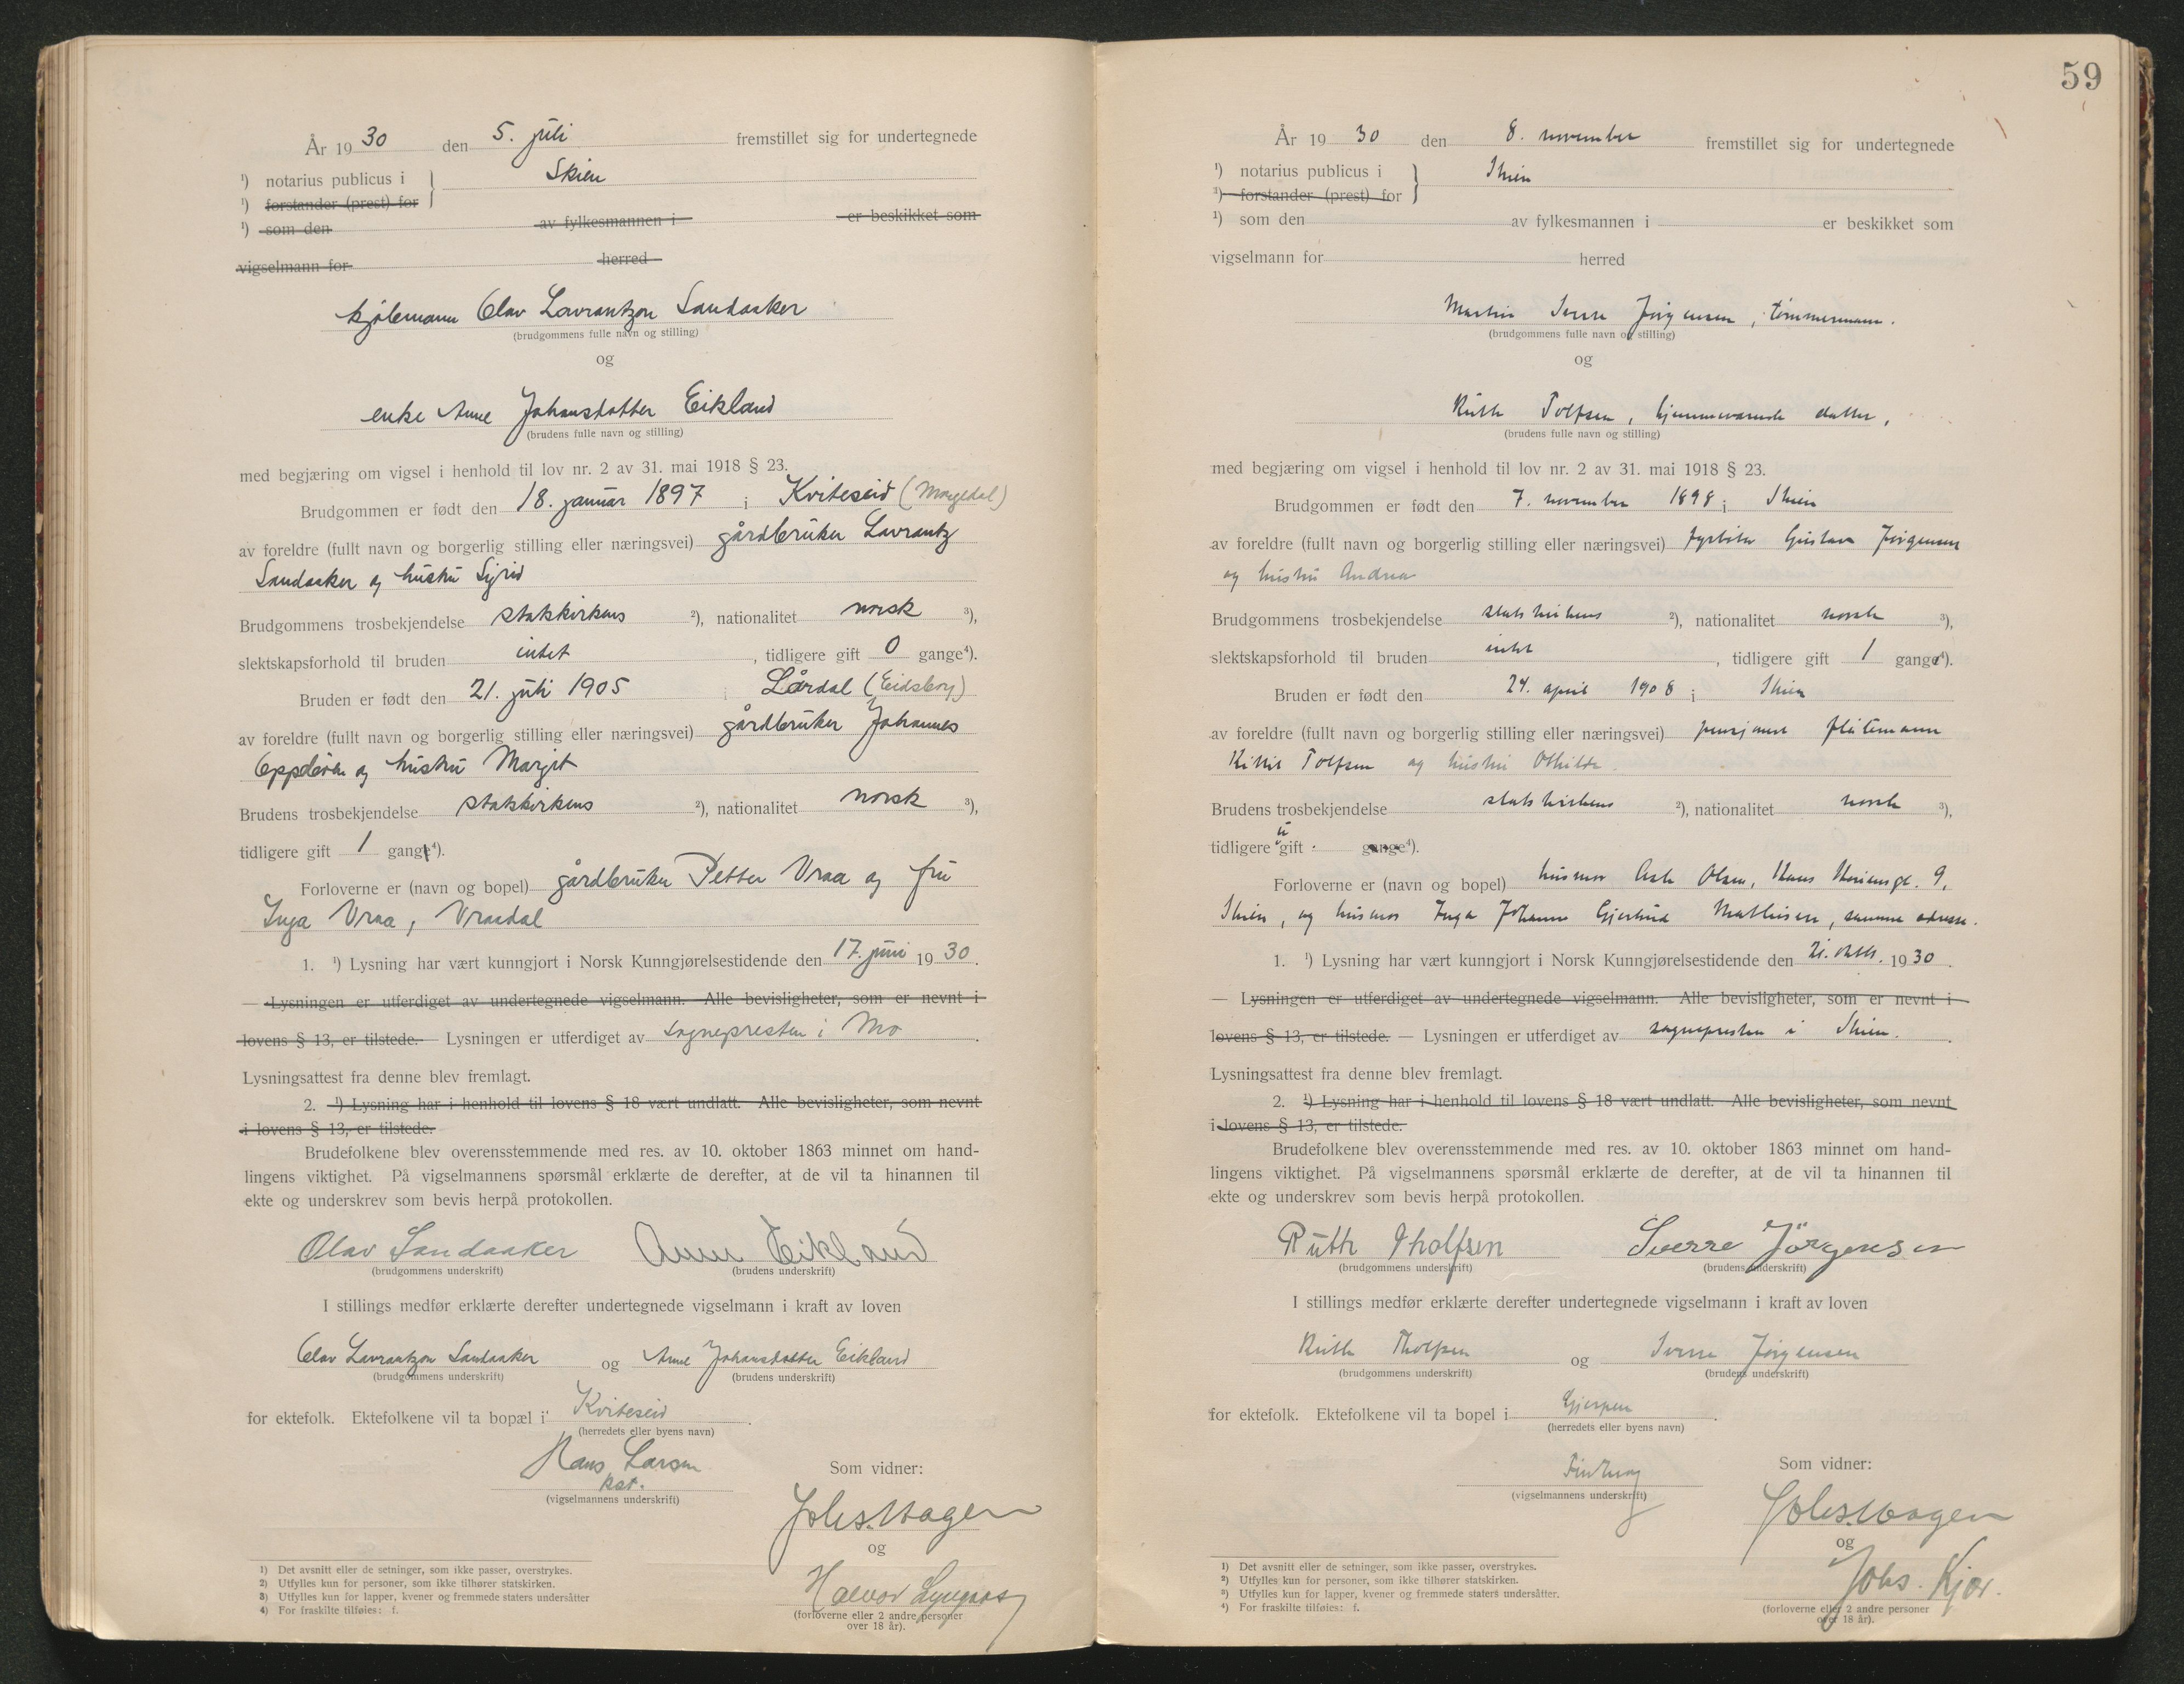 År 19 30 den 5. juli fremstillet sig for undertegnede
¹) notarius publicus i } Skien
¹) forstander (prest) for
¹) som den av fylkesmannen i er beskikket som
vigselmann for herred
kjølemann Olav Lavrantzon Sandaaker
(brudgommens fulle navn og stilling)
og
enke Anne Johansdatter Eikland
(brudens fulle navn og stilling)
med begjæring om vigsel i henhold til lov nr. 2 av 31. mai 1918 § 23.
Brudgommen er født den 18. januar 1897 i Kviteseid (Morgedal)
av foreldre (fullt navn og borgerlig stilling eller næringsvei) gårdbruker Lavrantz
Sandaaker og hustru Sigrid
Brudgommens trosbekjendelse statskirkens ²), nationalitet norsk ³),
slektskapsforhold til bruden intet , tidligere gift 0 gange⁴).
Bruden er født den 21. juli 1905 i Lårdal (Eidsborg)
av foreldre (fullt navn og borgerlig stilling eller næringsvei) gårdbruker Johannes
og hustru Margit
Brudens trosbekjendelse statskirkens ²), nationalitet norsk ³),
tidligere gift 1 gange⁴).
Forloverne er (navn og bopel) gårdbruker Petter Vraa og fru
Inga Vraa, Vraadal
1. ¹) Lysning har vært kunngjort i Norsk Kunngjørelsestidende den 17. juni 19 30.
— Lysningen er utferdiget av undertegnede vigselmann. Alle bevisligheter, som er nevnt i
lovens § 13, er tilstede. — Lysningen er utferdiget av sognepresten i Mo .
Lysningsattest fra denne blev fremlagt.
2. ¹) Lysning har i henhold til lovens § 18 vært undlatt. Alle bevisligheter, som nevnt
i lovens § 13, er tilstede.
Brudefolkene blev overensstemmende med res. av 10. oktober 1863 minnet om hand-
lingens viktighet. På vigselmannens spørsmål erklærte de derefter, at de vil ta hinannen til
ekte og underskrev som bevis herpå protokollen.
Olav Sandaaker Anne Eikland
(brudgommens underskrift) (brudens underskrift)
I stillings medfør erklærte derefter undertegnede vigselmann i kraft av loven
Olav Lavrantzon Sandaaker og Anne Johansdatter Eikland
(brudgommens underskrift) (brudens underskrift)
for ektefolk. Ektefolkene vil ta bopæl i Kviteseid .
(herredets eller byens navn)
Hans Larsen
kst.
(vigselmannens underskrift)
Som vidner:
Johs. Hagen
og
Halvor
(forloverne eller 2 andre personer
over 18 år).
1) Det avsnitt eller de setninger, som ikke passer, overstrykes.
2) Utfylles kun for personer, som ikke tilhører statskirken.
3) Utfylles kun for lapper, kvener og fremmede staters undersåtter
4) For fraskilte tilføies: f.
59
År 19 30 den 8. november fremstillet sig for undertegnede
¹) notarius publicus i } Skien
¹) forstander (prest) for
¹) som den av fylkesmannen i er beskikket som
vigselmann for herred
Martin Sverre Jørgensen, tømmermann.
(brudgommens fulle navn og stilling)
og
Ruth Tolfsen, hjemmeværende datter,
(brudens fulle navn og stilling)
med begjæring om vigsel i henhold til lov nr. 2 av 31. mai 1918 § 23.
Brudgommen er født den 7. november 1898 i Skien
av foreldre (fullt navn og borgerlig stilling eller næringsvei) fyrbøter Gustav Jørgensen
og hustru Andrea
Brudgommens trosbekjendelse statskirkens ²), nationalitet norsk ³),
slektskapsforhold til bruden intet , tidligere gift 1 gange⁴).
Bruden er født den 24. april 1908 i Skien
av foreldre (fullt navn og borgerlig stilling eller næringsvei) pensjonert fløtemann
Kittil Tolfsen og hustru Othilde.
Brudens trosbekjendelse statskirkens ²), nationalitet norsk ³),
tidligere ugift gange⁴).
Forloverne er (navn og bopel) husmor Olsen, 9,
Skien, og husmor Inga Johanne Gjertrud Mathisen, samme adresse.
1. ¹) Lysning har vært kunngjort i Norsk Kunngjørelsestidende den 21. oktbr. 19 30 .
— Lysningen er utferdiget av undertegnede vigselmann. Alle bevisligheter, som er nevnt i
lovens § 13, er tilstede. — Lysningen er utferdiget av sognepresten i Skien.
Lysningsattest fra denne blev fremlagt.
2. ¹) Lysning har i henhold til lovens § 18 vært undlatt. Alle bevisligheter, som nevnt
i lovens § 13, er tilstede.
Brudefolkene blev overensstemmende med res. av 10. oktober 1863 minnet om hand-
lingens viktighet. På vigselmannens spørsmål erklærte de derefter, at de vil ta hinannen til
ekte og underskrev som bevis herpå protokollen.
Ruth Tholfsen Sverre Jörgensen
(brudgommens underskrift) (brudens underskrift)
I stillings medfør erklærte derefter undertegnede vigselmann i kraft av loven
Ruth Tholfsen og Sverre Jørgensen
(brudgommens underskrift) (brudens underskrift)
for ektefolk. Ektefolkene vil ta bopel i Gjerpen .
(herredets eller byens navn)
(vigselmannens underskrift)
Som vidner:
Johs. Hagen
og
Johs. Kjær.
(forloverne eller 2 andre personer
over 18 år).
1) Det avsnitt eller de setninger, som ikke passer, overstrykes.
2) Utfylles kun for personer, som ikke tilhører statskirken.
3) Utfylles kun for lapper, kvener og fremmede staters undersåtter.
4) For fraskilte tilføies: f.